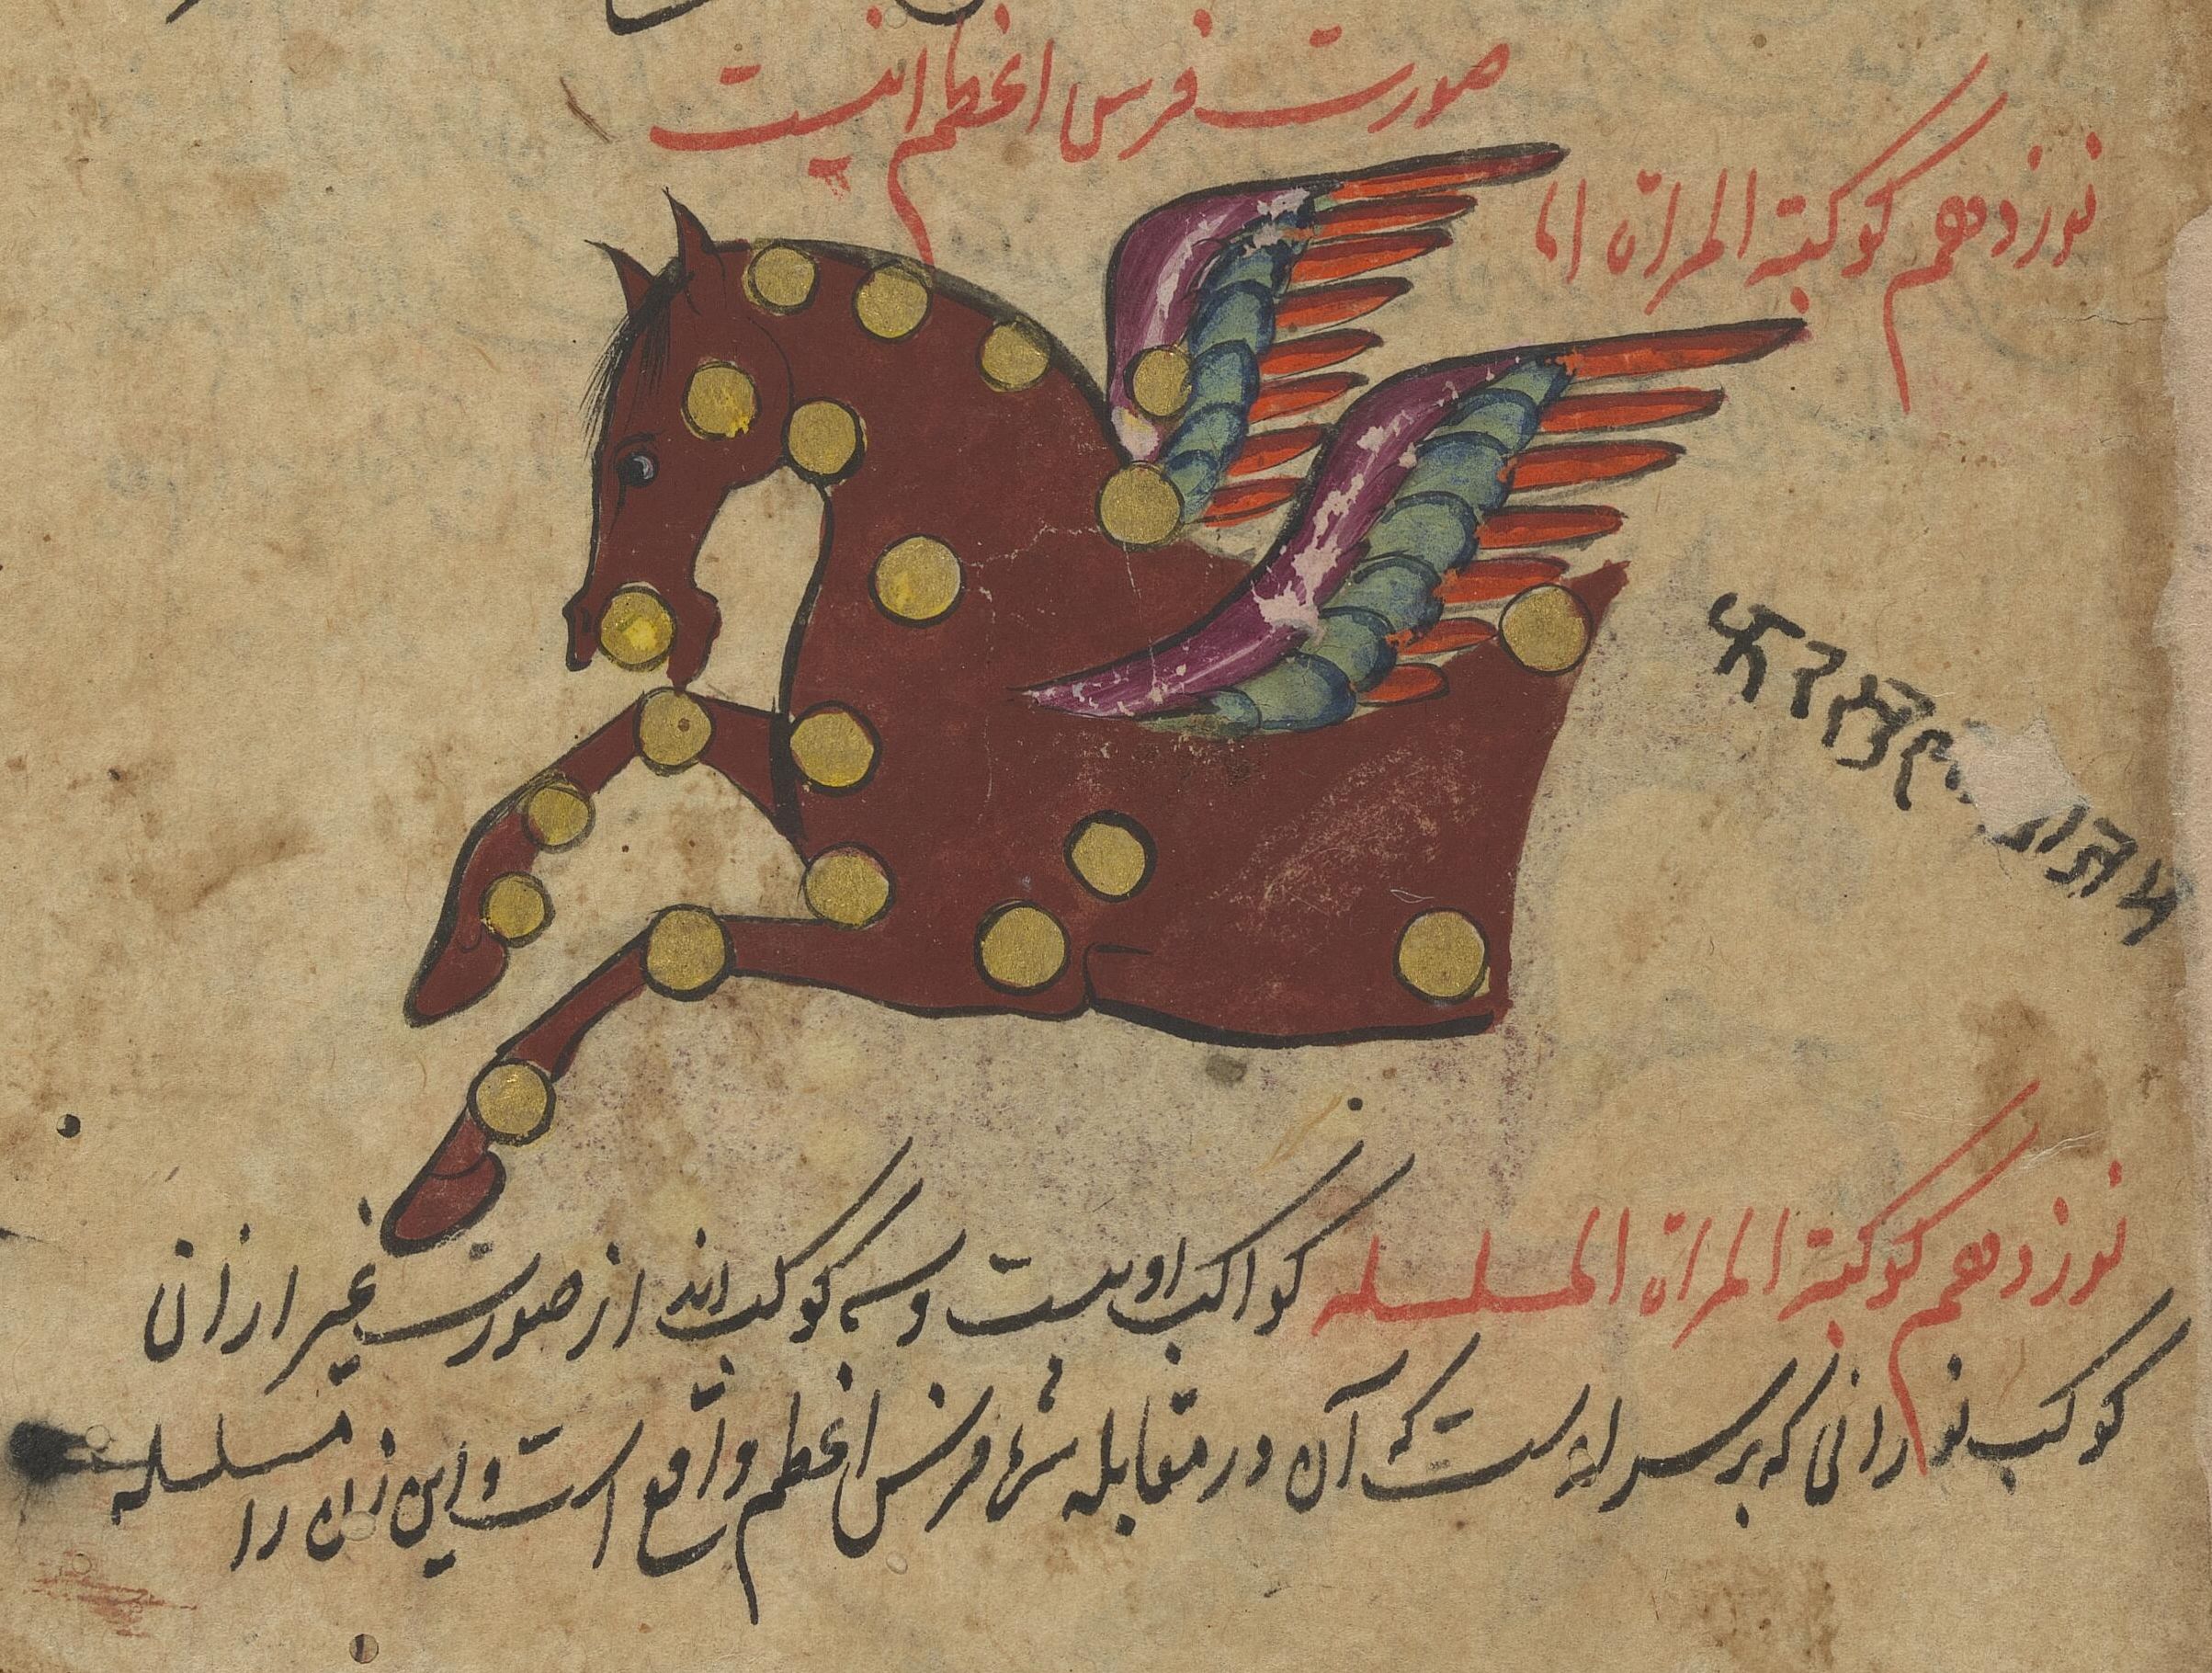 صورت فرس اعظم اینست
نوزدهم کوکبة المراة اما
نوزدهم کوکبة المراة المسلسله کواکب او بیست و سه کوکب اند از صورت غیر از انی
کوکب نورانی که بر سر او است که آن در مقابله سرهٔ فرس اعظم واقع است و این زن را مسلسله